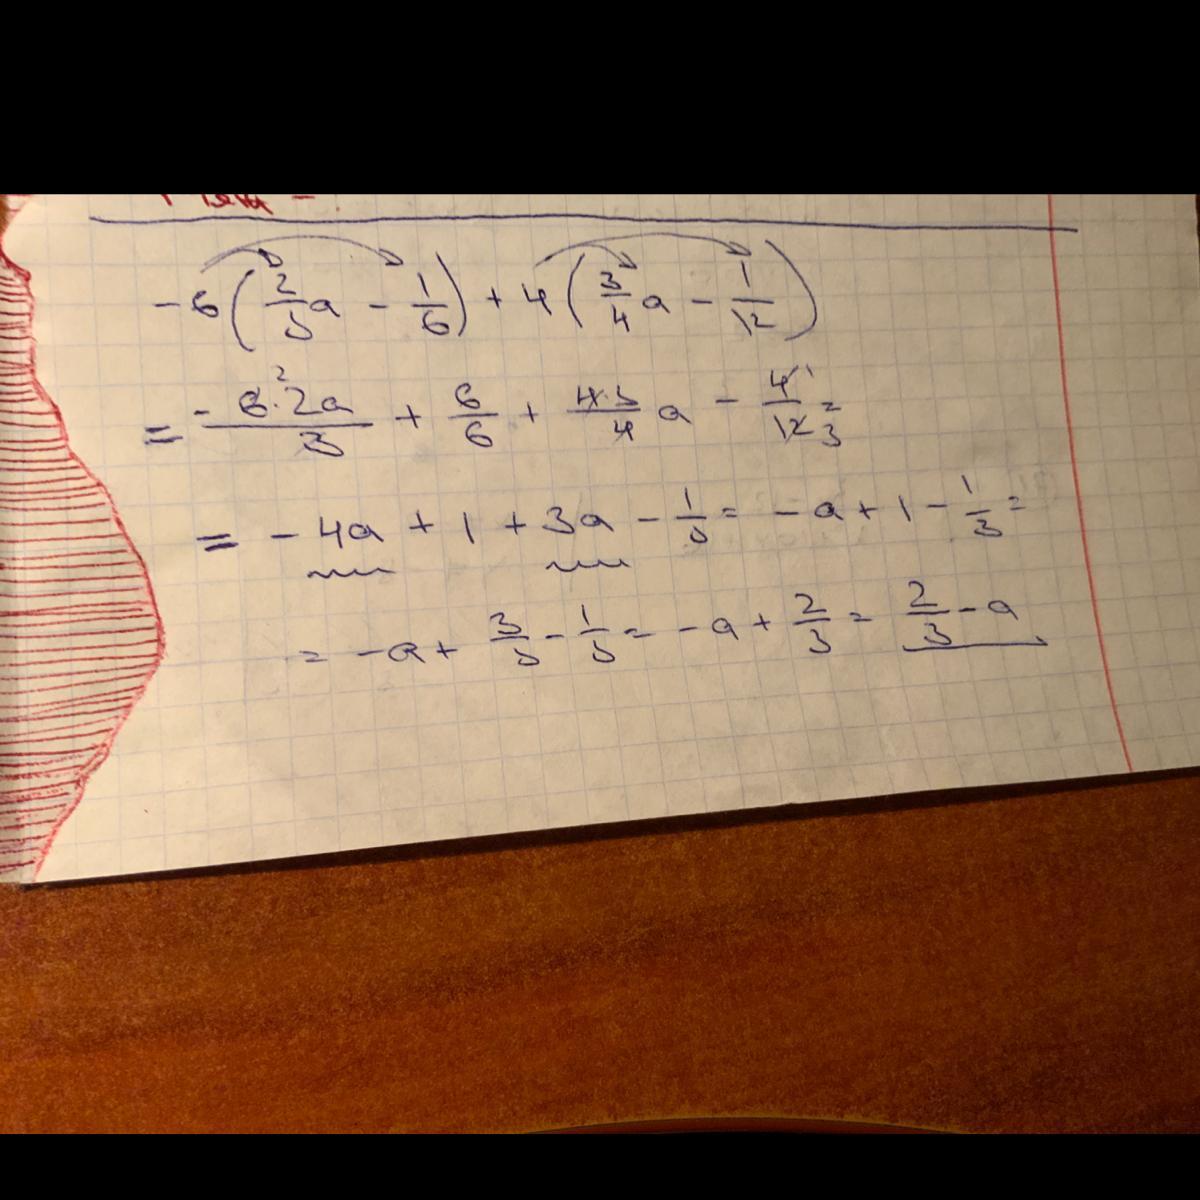 -6(2/3 a - 1/6) + 4(3/4 a - 1/12)
= - 6² · 2a / 3 + 6/6 + 4·3/4 a - 4¹/12 3 =
= - 4a + 1 + 3a - 1/3 = - a + 1 - 1/3 =
= - a + 3/3 - 1/3 = - a + 2/3 = 2/3 - a